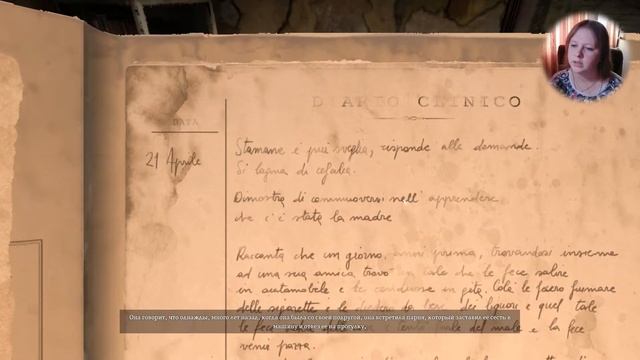 DIARIO CLINICO
DATA
21 Aprile
Stamane è più sveglia, risponde alle domande.
Si lagna di cefalea.
Dimostra di commuoversi nell' apprendere
che c'è stata la madre
Racconta che un giorno, anni prima, trovandosi insieme
ad una sua amica trovò un tale che le fece salire
in automobile e le condusse in gita. Colà le fecero fumare
delle sigarette e le diedero da bere dei liquori e quel tale
le fece del male e la fece
venir pazza.
Она говорит, что однажды, много лет назад, когда она была со своей подругой, она встретила парня, который заставил её сесть в
машину и отвез её на прогулку.